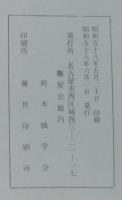 昭和五十八年五月二十日　印刷
昭和五十八年六月一日　発行
発行所　名古屋市西区城西三―二一―一七
会館内
鈴木　学会
印刷所　藤井印刷所